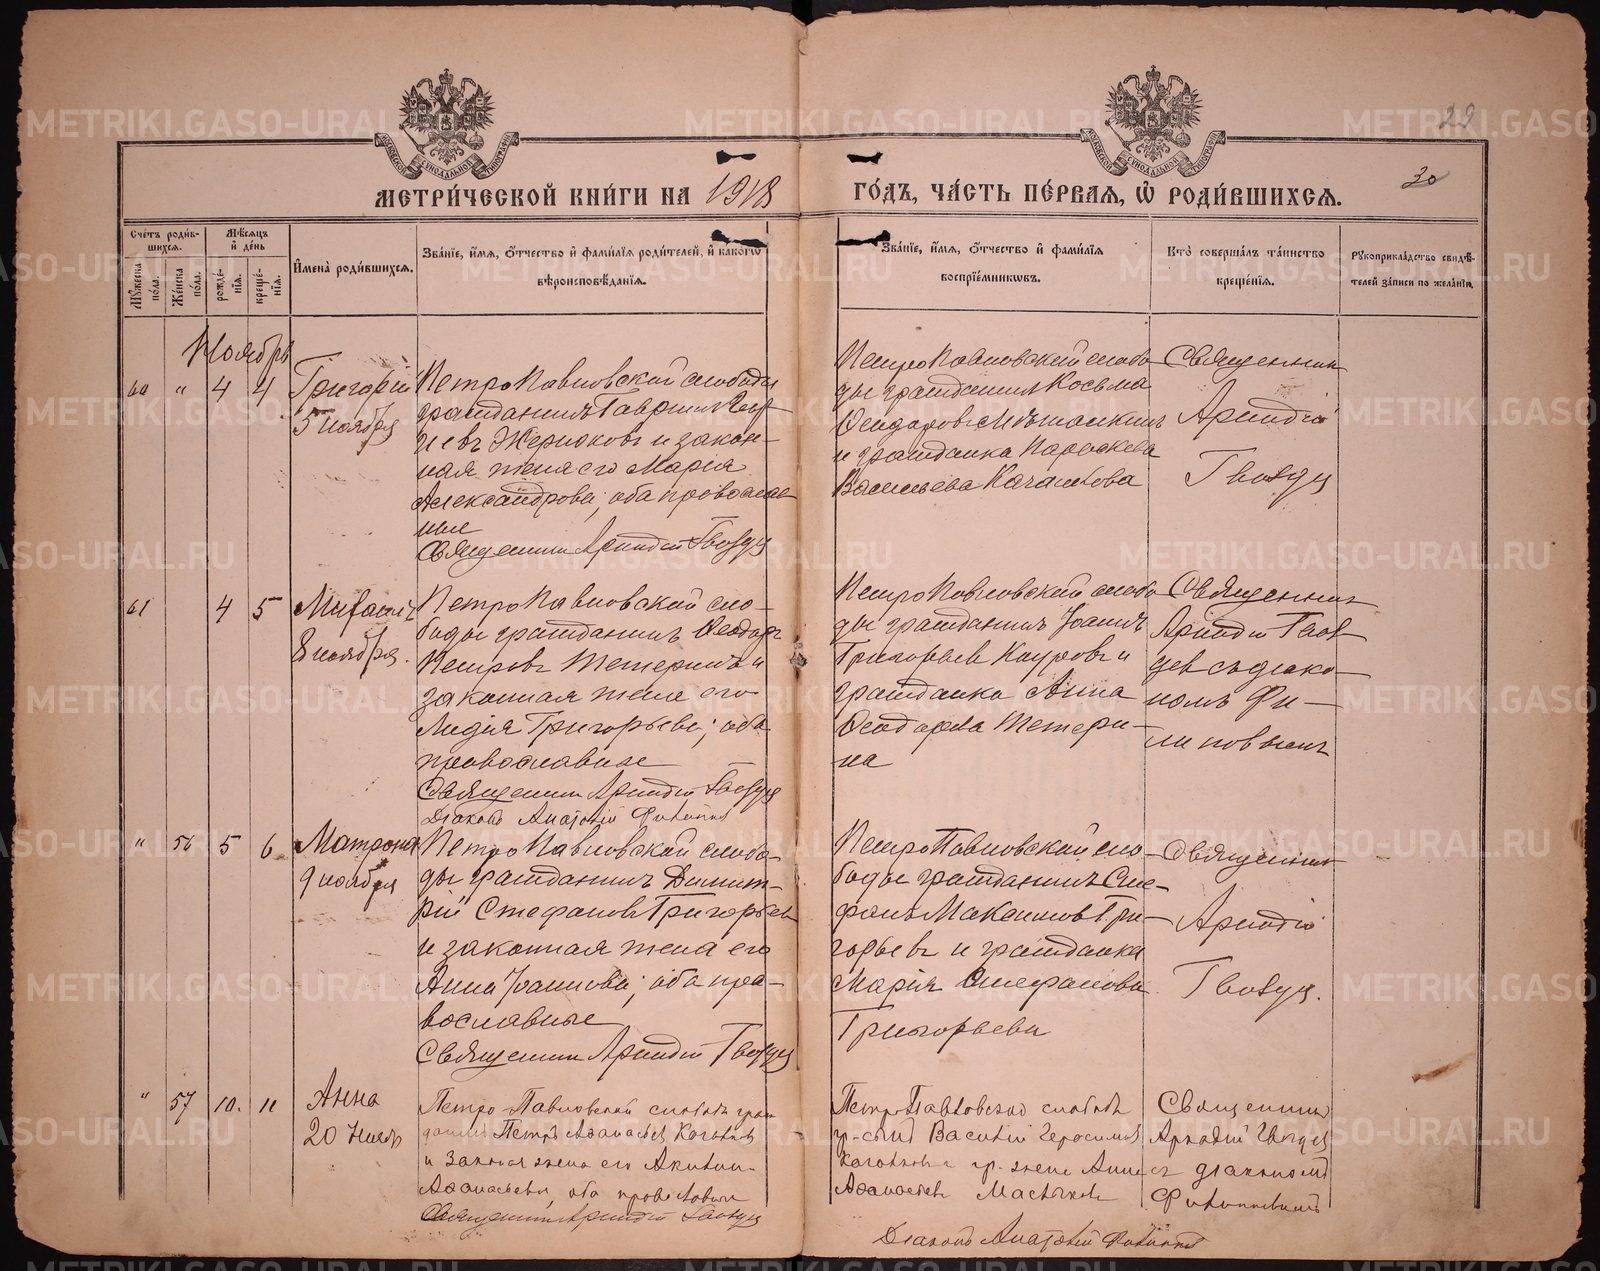 29
30
МЕТРИ́ЧЕСКОЙ КНИ́ГИ НА 1918
ГО́ДЪ, ЧА́СТЬ ПЕ́РВАѦ, Ѡ҆ РОДИ́ВШИХСѦ.
Сче́тъ роди́в-
шихсѧ.
Мѣ́сѧцъ
и҆ де́нь
Мꙋ́жеска по́ла.
Же́нска по́ла.
рожде́-
нїѧ.
креще́-
нїѧ.
И҆мена̀ роди́вшихсѧ.
Зва́нїе, и҆́мѧ, ѻ҆́тчество и҆ фами́лїѧ роди́телей, и҆ како́гѡ
вѣроисповѣ́данїѧ.
Зва́нїе, и҆́мѧ, ѻ҆́тчество и҆ фами́лїѧ
воспрїе́мникѡвъ.
Кто̀ соверша́лъ та́инство
креще́нїѧ.
Рꙋкоприкла́дство свидѣ́-
телей за́писи по жела́нїю.
Ноябрь
60 " 4 4
Григорій
5 ноября
Петропавловской слободы
гражданинъ Гавриилъ
и закон-
ная жена его Марія
Александрова; оба православ-
ные
Священникъ Аркадій Гвоздев
Петропавловской слобо-
ды гражданинъ Косьма
Ѳеодоровъ
и гражданка Параскева
Васильева
Священник
Аркадій
Гвоздев
61 4 5
Михаилъ
8 ноября.
Петропавловской сло-
боды гражданинъ Ѳеодоръ
Петровъ Тетеринъ и
законная жена его
Лидія Григорьева; оба
православные
Священник Аркадій Гвоздев
Діаконъ Анатолій Филиппов
Петропавловской слобо-
ды гражданинъ Іоаннъ
Григорьев и
гражданка Анна
Ѳеодорова Тетери-
на
Священник
Аркадій Гвоз-
дев съ діако-
номъ Фи-
липповымъ
" 56 5 6
Матрона
9 ноября
Петропавловской слобо-
ды гражданинъ Димит-
рій Стефановъ Григорьев
и законная жена его
Анна Іоаннова; оба пра-
вославные
Священник Аркадій Гвоздев
Петропавловской сло-
боды гражданинъ Сте-
фанъ Максимовъ Гри-
горьевъ и гражданка
Марія Стефанова
Григорьева
Священник
Аркадій
Гвоздев.
" 57 10. 11
Анна
20 Нояб
Петро-Павловской слободы граж
данинъ Петръ Аѳанасьев
и Законная жена его
Аѳанасьева, оба православн
Священник Аркадій Гвоздев
Петро-Павловской слободы
гр-нинъ Василій Герасимов
и гр. жена Анна
Аѳанасьева
Священник
Аркадій Гвоздев
съ діакономъ
Филипповымъ
Діаконъ Анатолій Филиппов
METRIKI.GASO-URAL.RU